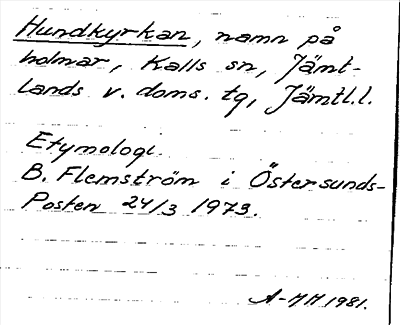 Hundkyrkan, namn på
holmar, Kalls sn, Jämt-
lands v. doms. tg, Jämtl.l.
Etymologi.
B. Flemström i Östersunds-
Posten 24/3 1973.
A-MH 1981.